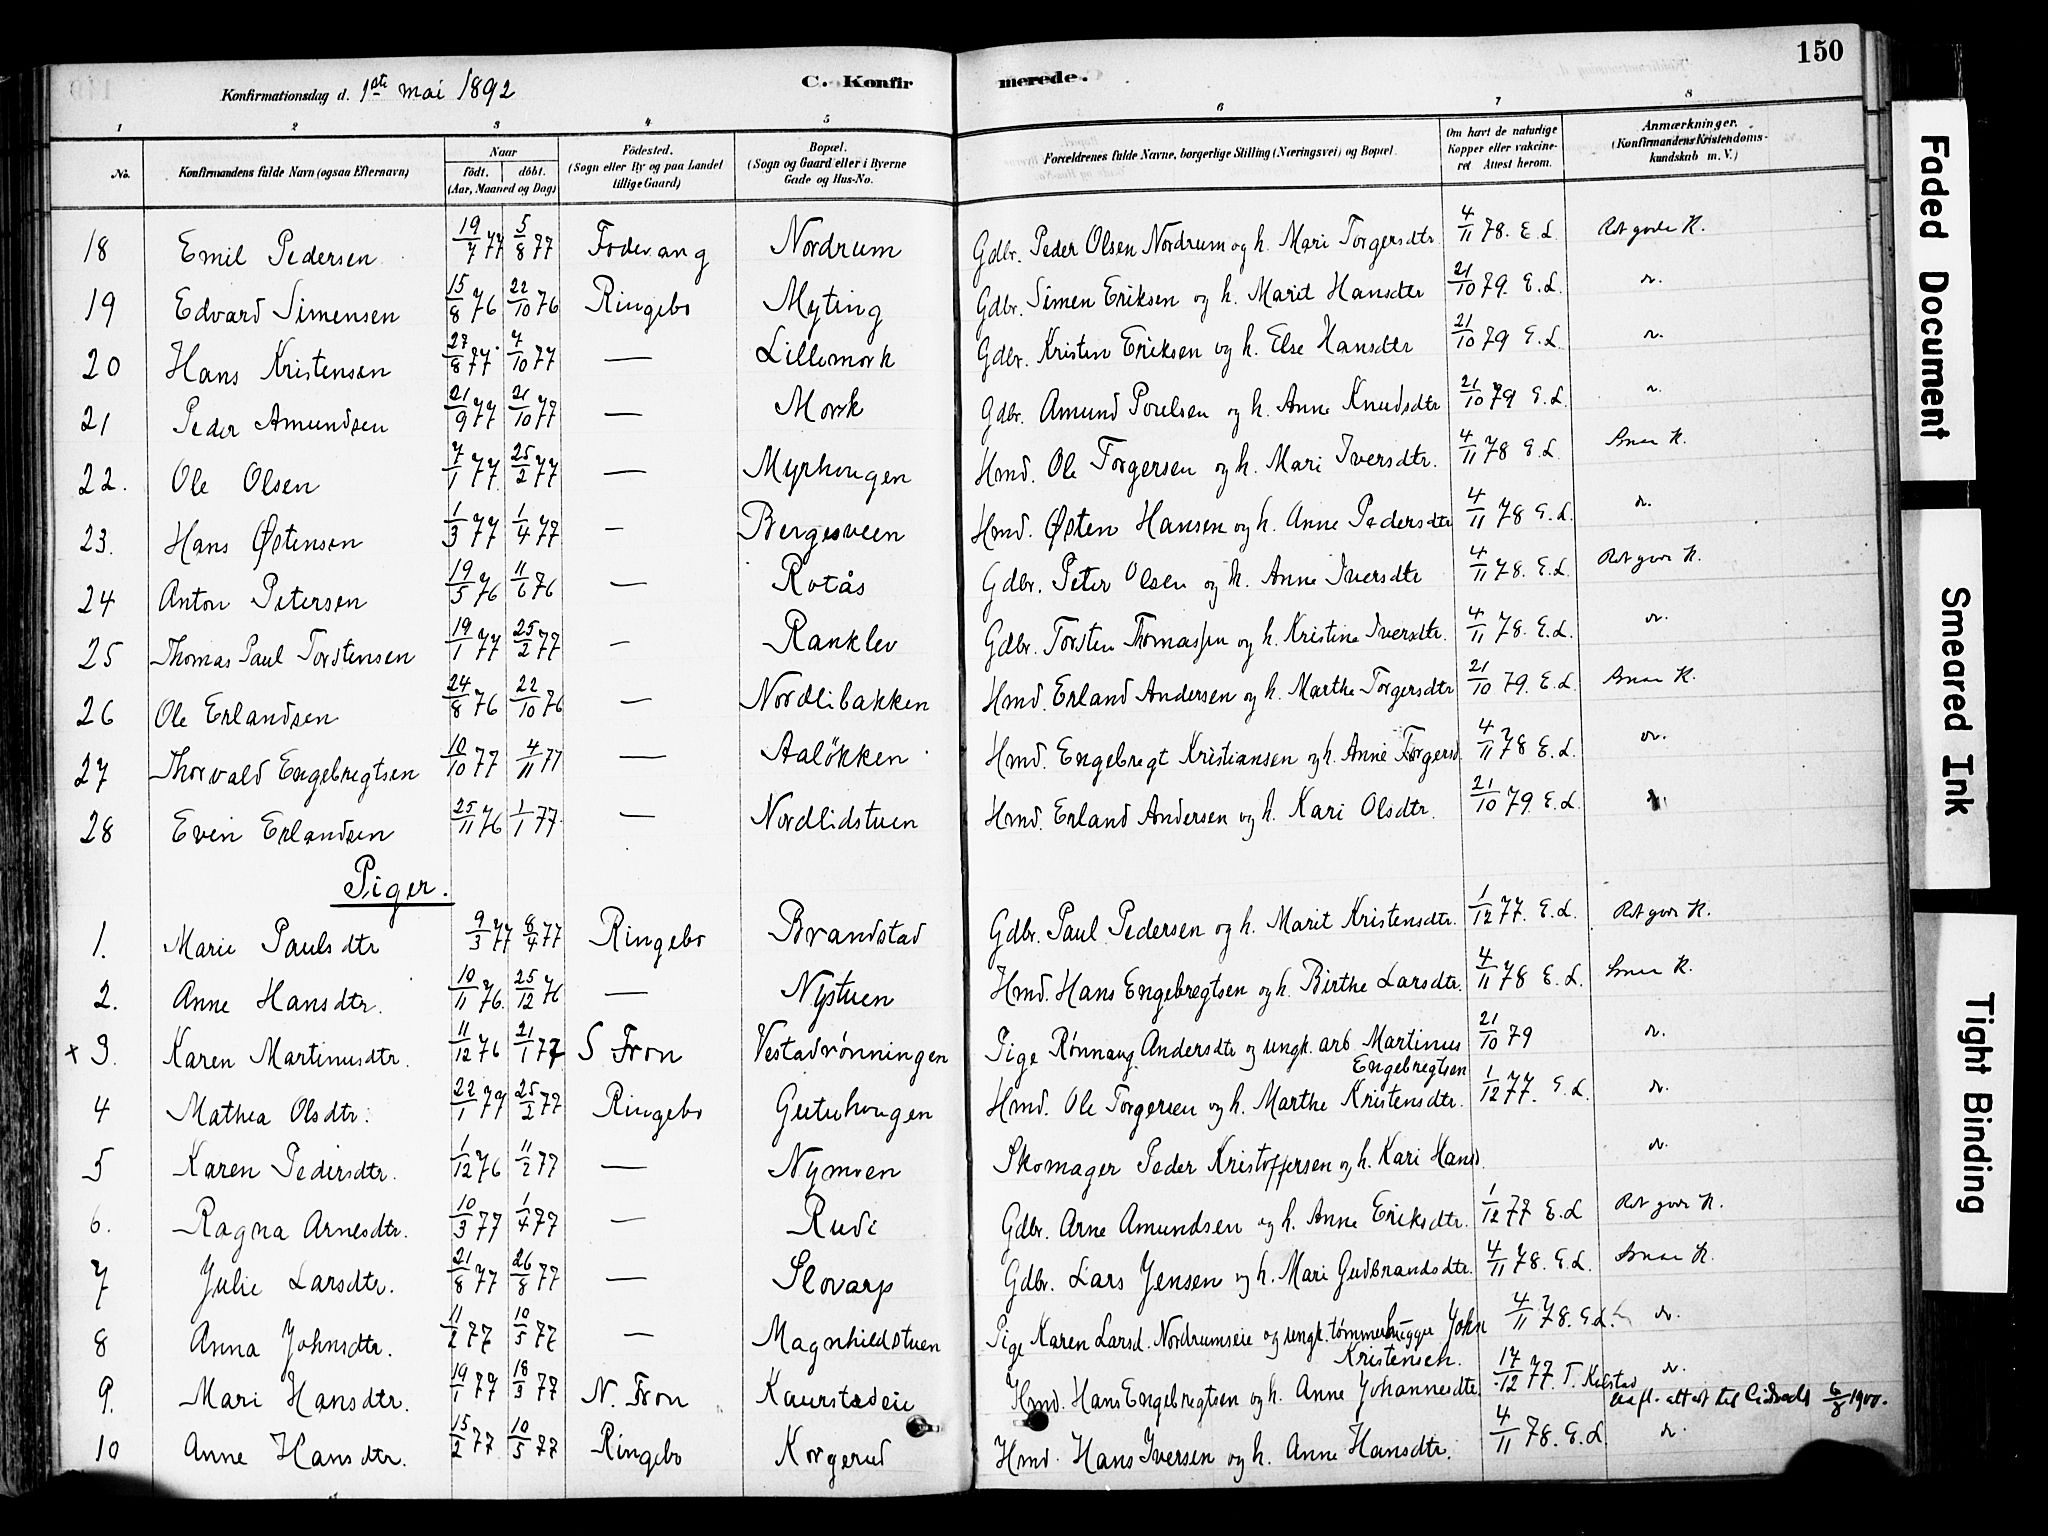 150
Konfirmationsdag d. 1ste mai 1892 C. Konfirmerede.
1 2 3 4 5 6 7 8
No. Konfirmandens fulde Navn (ogsaa Efternavn) Naar født. døbt. (Aar, Maaned og Dag) Fødested. (Sogn eller By og paa Landet tillige Gaard) Bopæl. (Sogn og Gaard eller i Byerne Gade og Hus-No. Forældrenes fulde Navne, borgerlige Stilling (Næringsvei) og Bopæl. Om havt de naturlige Kopper eller vakcineret Attest herom. Anmærkninger. (Konfirmandens Kristendomskundskab m. V.)
18 Emil Pedersen 19/7 77 5/8 77 Fodvang Nordrum Gdbr. Peder Olsen Nordrum og h. Mari Torgersdtr 4/11 78. E. L. Ret gode K.
19 Edvard Simensen 15/8 76 22/10 76 Ringebo Myting Gdbr. Simen Eriksen og h. Marit Hansdtr 21/10 79. E. L.
20 Hans Kristensen 27/8 77 7/10 77 — Lillemork Gdbr. Kristen Eriksen og h. Else Hansdtr 21/10 79 E. L.
21 Peder Amundsen 21/9 77 21/10 77 — Mork Gdbr. Amund Poulsen og h. Anne Knudsdtr 21/10 79 E. L.
22. Ole Olsen 7/1 77 25/2 77 — Myrhougen Hmd. Ole Torgersen og h. Mari Iversdtr. 4/11 78 E. L.
23. Hans Østensen 1/3 77 1/4 77 — Bergesveen Hmd. Østen Hansen og h. Anne Pedersdtr 4/11 78 E. L.
24 Anton Petersen 19/5 76 11/6 76 — Rotås Gdbr. Peter Olsen og h. Anne Iversdtr 4/11 78. E. L. Ret gode K.
25 Thomas Paul Torstensen 19/1 77 25/2 77 — Ranklev Gdbr. Torsten Thomassen og h. Kristine Iversdtr. 4/11 78. E. L.
26 Ole Erlandsen 24/8 76 22/10 76 — Nordlibakken Hmd. Erland Andersen og h. Marthe Torgersdtr 21/10 79. E. L.
27 Thorvald Engebregtsen 10/10 77 4/11 77 — Aaløkken Hmd. Engebregt Kristiansen og h. Anne Torgersd. 4/11 78 E. L.
28 Even Erlandsen 25/11 76 1/1 77. — Nordlidstuen Hmd. Erland Andersen og h. Kari Olsdtr. 21/10 79. E. L.
Piger.
1. Marie Paulsdtr 9/3 77 8/4 77 Ringebo Brandstad Gdbr. Paul Pedersen og h. Marit Kristensdtr. 1/12 77. E. L. Ret gode K.
2. Anne Hansdtr. 10/11 76. 25/12 76 — Nystuen Hmd. Hans Engebregtsen og h. Birthe Larsdtr. 4/11 78 E. L.
x 3. Karen Martinusdtr. 11/12 76 21/1 77 S Fron Vestadrønningen Pige Rønnaug Andersdtr og ungk. arb Martinus 21/10 79
Engebregtsen
4 Mathea Olsdtr. 22/1 77 25/2 77 Ringebo Geitehougen Hmd. Ole Torgersen og h. Marthe Kristensdtr. 1/12 77. E. L.
5 Karen Pedersdtr. 1/12 76 11/2 77 — Nymoen Skomager Peder Kristoffersen og h. Kari Hansd.
6. Ragna Arnesdtr. 10/3 77 1/4 77 — Rudi Gdbr. Arne Amundsen og h. Anne Eriksdtr. 1/12 77 E. L Ret gode K.
7 Julie Larsdtr. 21/8 77 26/8 77 — Slovarp Gdbr. Lars Jensen og h. Mari Gudbrandsdtr. 4/11 78. E. L.
8 Anna Johnsdtr. 11/2 77 10/5 77 — Magnhildstuen Pige Karen Larsd. Nordrumseie og ungk. tømmerhugger John 4/11 78. E. L.
Kristensen.
9. Mari Hansdtr. 19/1 77 18/3 77 N. Fron Kaurstadeie Hmd. Hans Engebregtsen og h. Anne Johannesdtr. 17/12 77. T.
6/8 1900.
10 Anne Hansdtr. 15/2 77 10/5 77 Ringebo Korgerud Hmd. Hans Iversen og h. Anne Hansdtr. 4/11 78. E. L
Faded Document
Smeared Ink
Tight Binding